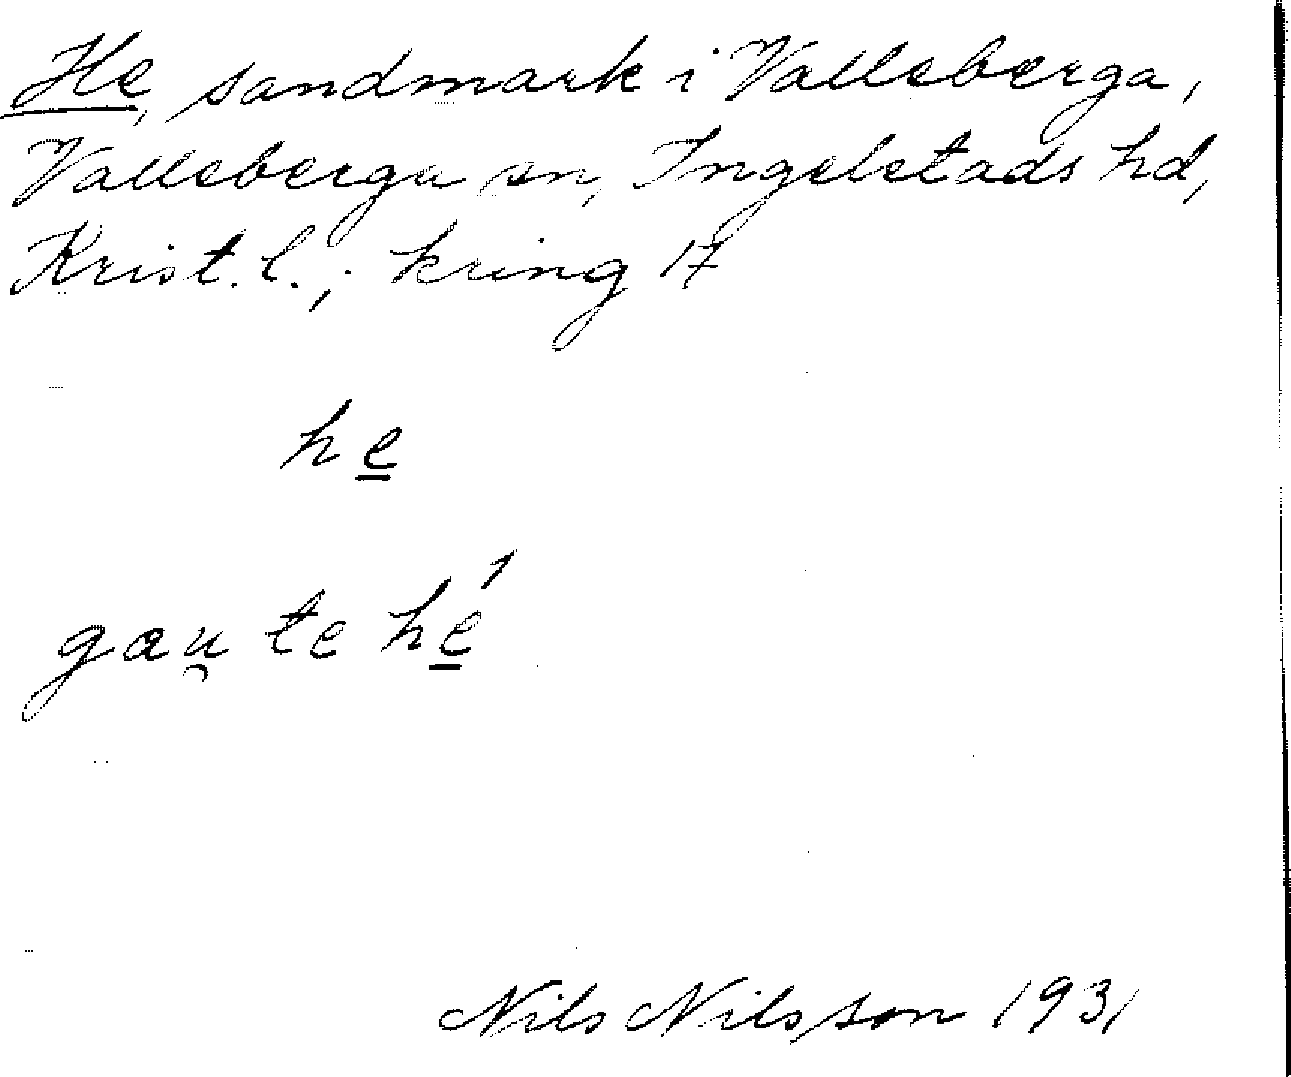 He, sandmark i Valleberga,
Valleberga sn, Ingelstads hd,
Krist. l.; kring 17
he
gau̯ te hé
Nils Nilsson 1931